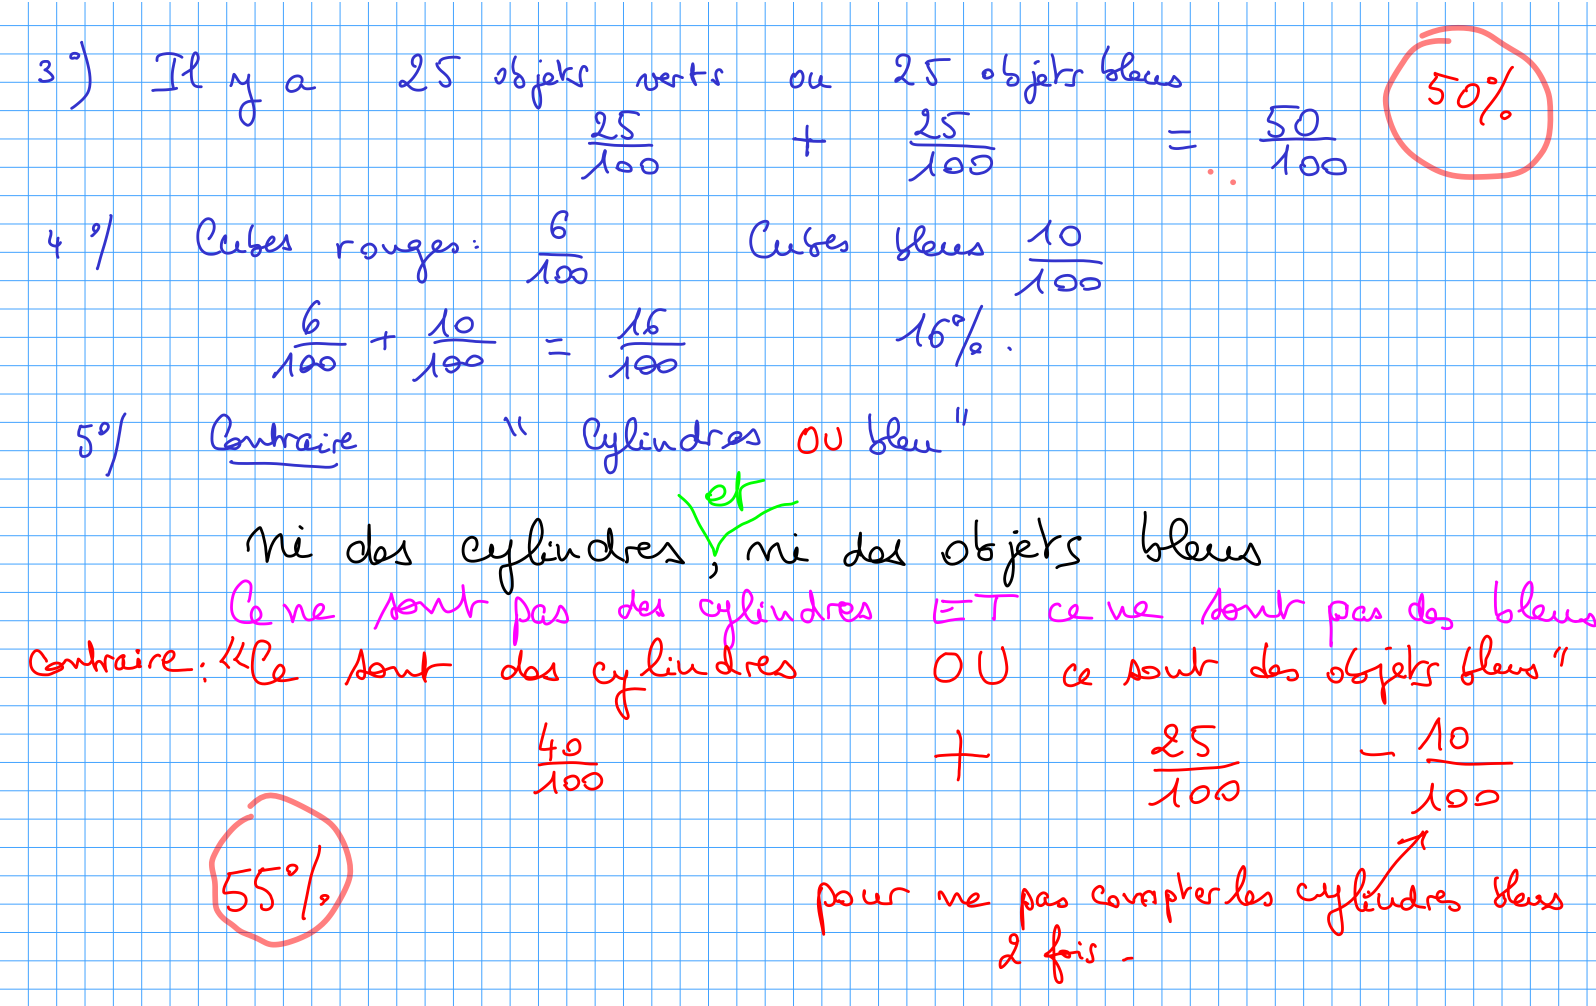 3°) Il y a 25 objets verts ou 25 objets bleus 50%
25/100 + 25/100 = 50/100
4°/ Cubes rouges: 6/100 Cubes bleus 10/100
6/100 + 10/100 = 16/100 16%.
5°/ Contraire " Cylindres OU bleu"
et
ni des cylindres, ni des objets bleus
Ce ne sont pas des cylindres ET ce ne sont pas des bleus
Contraire: «Ce sont des cylindres OU ce sont des objets bleus"
40/100 + 25/100 - 10/100
55%.
pour ne pas compter les cylindres bleus
2 fois.